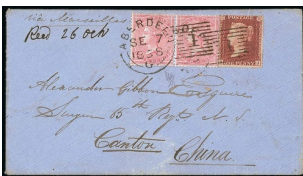 via Marseilles
Recd 26 Oct
ABERDEEN
SE 7
1858
1
Alexander Gibbon Esquire
Surgeon 65 Regt N. I.
Canton
China